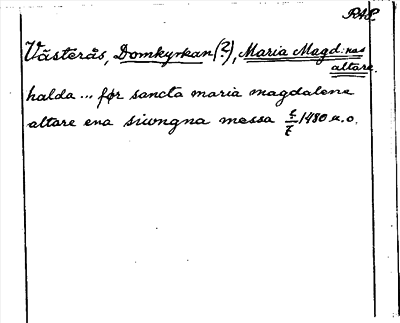 RAP.
Västerås, Domkyrkan (?), Maria Magd:nas
altare.
halda ... før sancta maria magdalene
altare ena siwngna messa 5/7 1480 a.o.